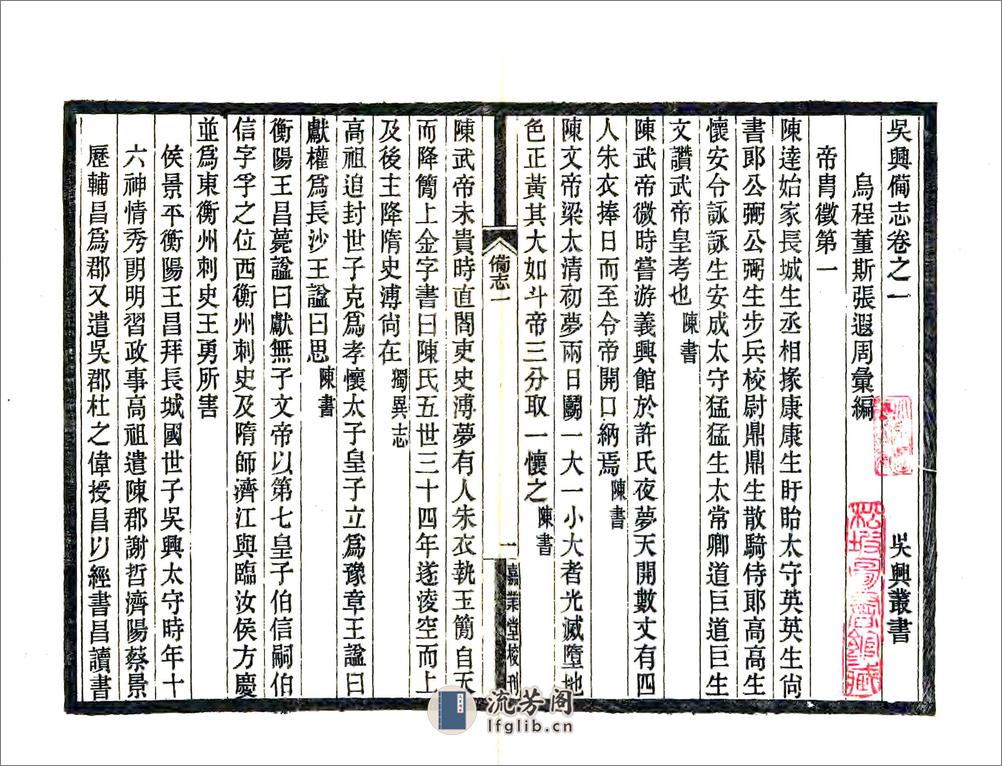 吳興備志卷之一　吳興叢書
烏程董斯張遐周彙編
帝胄徵第一
陳達始家長城生丞相掾康康生盱眙太守英英生尙
書郞公弼公弼生步兵校尉鼎鼎生散騎侍郞高高生
懷安令詠詠生安成太守猛猛生太常卿道巨道巨生
文讚武帝皇考也陳書
陳武帝微時嘗游義興館於許氏夜夢天開數丈有四
人朱衣捧日而至令帝開口納焉陳書
陳文帝梁太淸初夢兩日鬭一大一小大者光滅墮地
色正黃其大如斗帝三分取一懷之陳書
備志一
一
嘉業堂校刊
陳武帝未貴時直閤吏史溥夢有人朱衣執玉簡自天
而降簡上金字書曰陳氏五世三十四年遂淩空而上
及後主降隋史溥尙在獨異志
高祖追封世子克爲孝懷太子皇子立爲豫章王諡曰
獻權爲長沙王諡曰思陳書
衡陽王昌薨諡曰獻無子文帝以第七皇子伯信嗣伯
信字孚之位西衡州刺史及隋師濟江與臨汝侯方慶
並爲東衡州刺史王勇所害
侯景平衡陽王昌拜長城國世子吳興太守時年十
六神情秀朗明習政事高祖遣陳郡謝哲濟陽蔡景
歷輔昌爲郡又遣吳郡杜之偉授昌以經書昌讀書
流芳阁
lfglib.cn